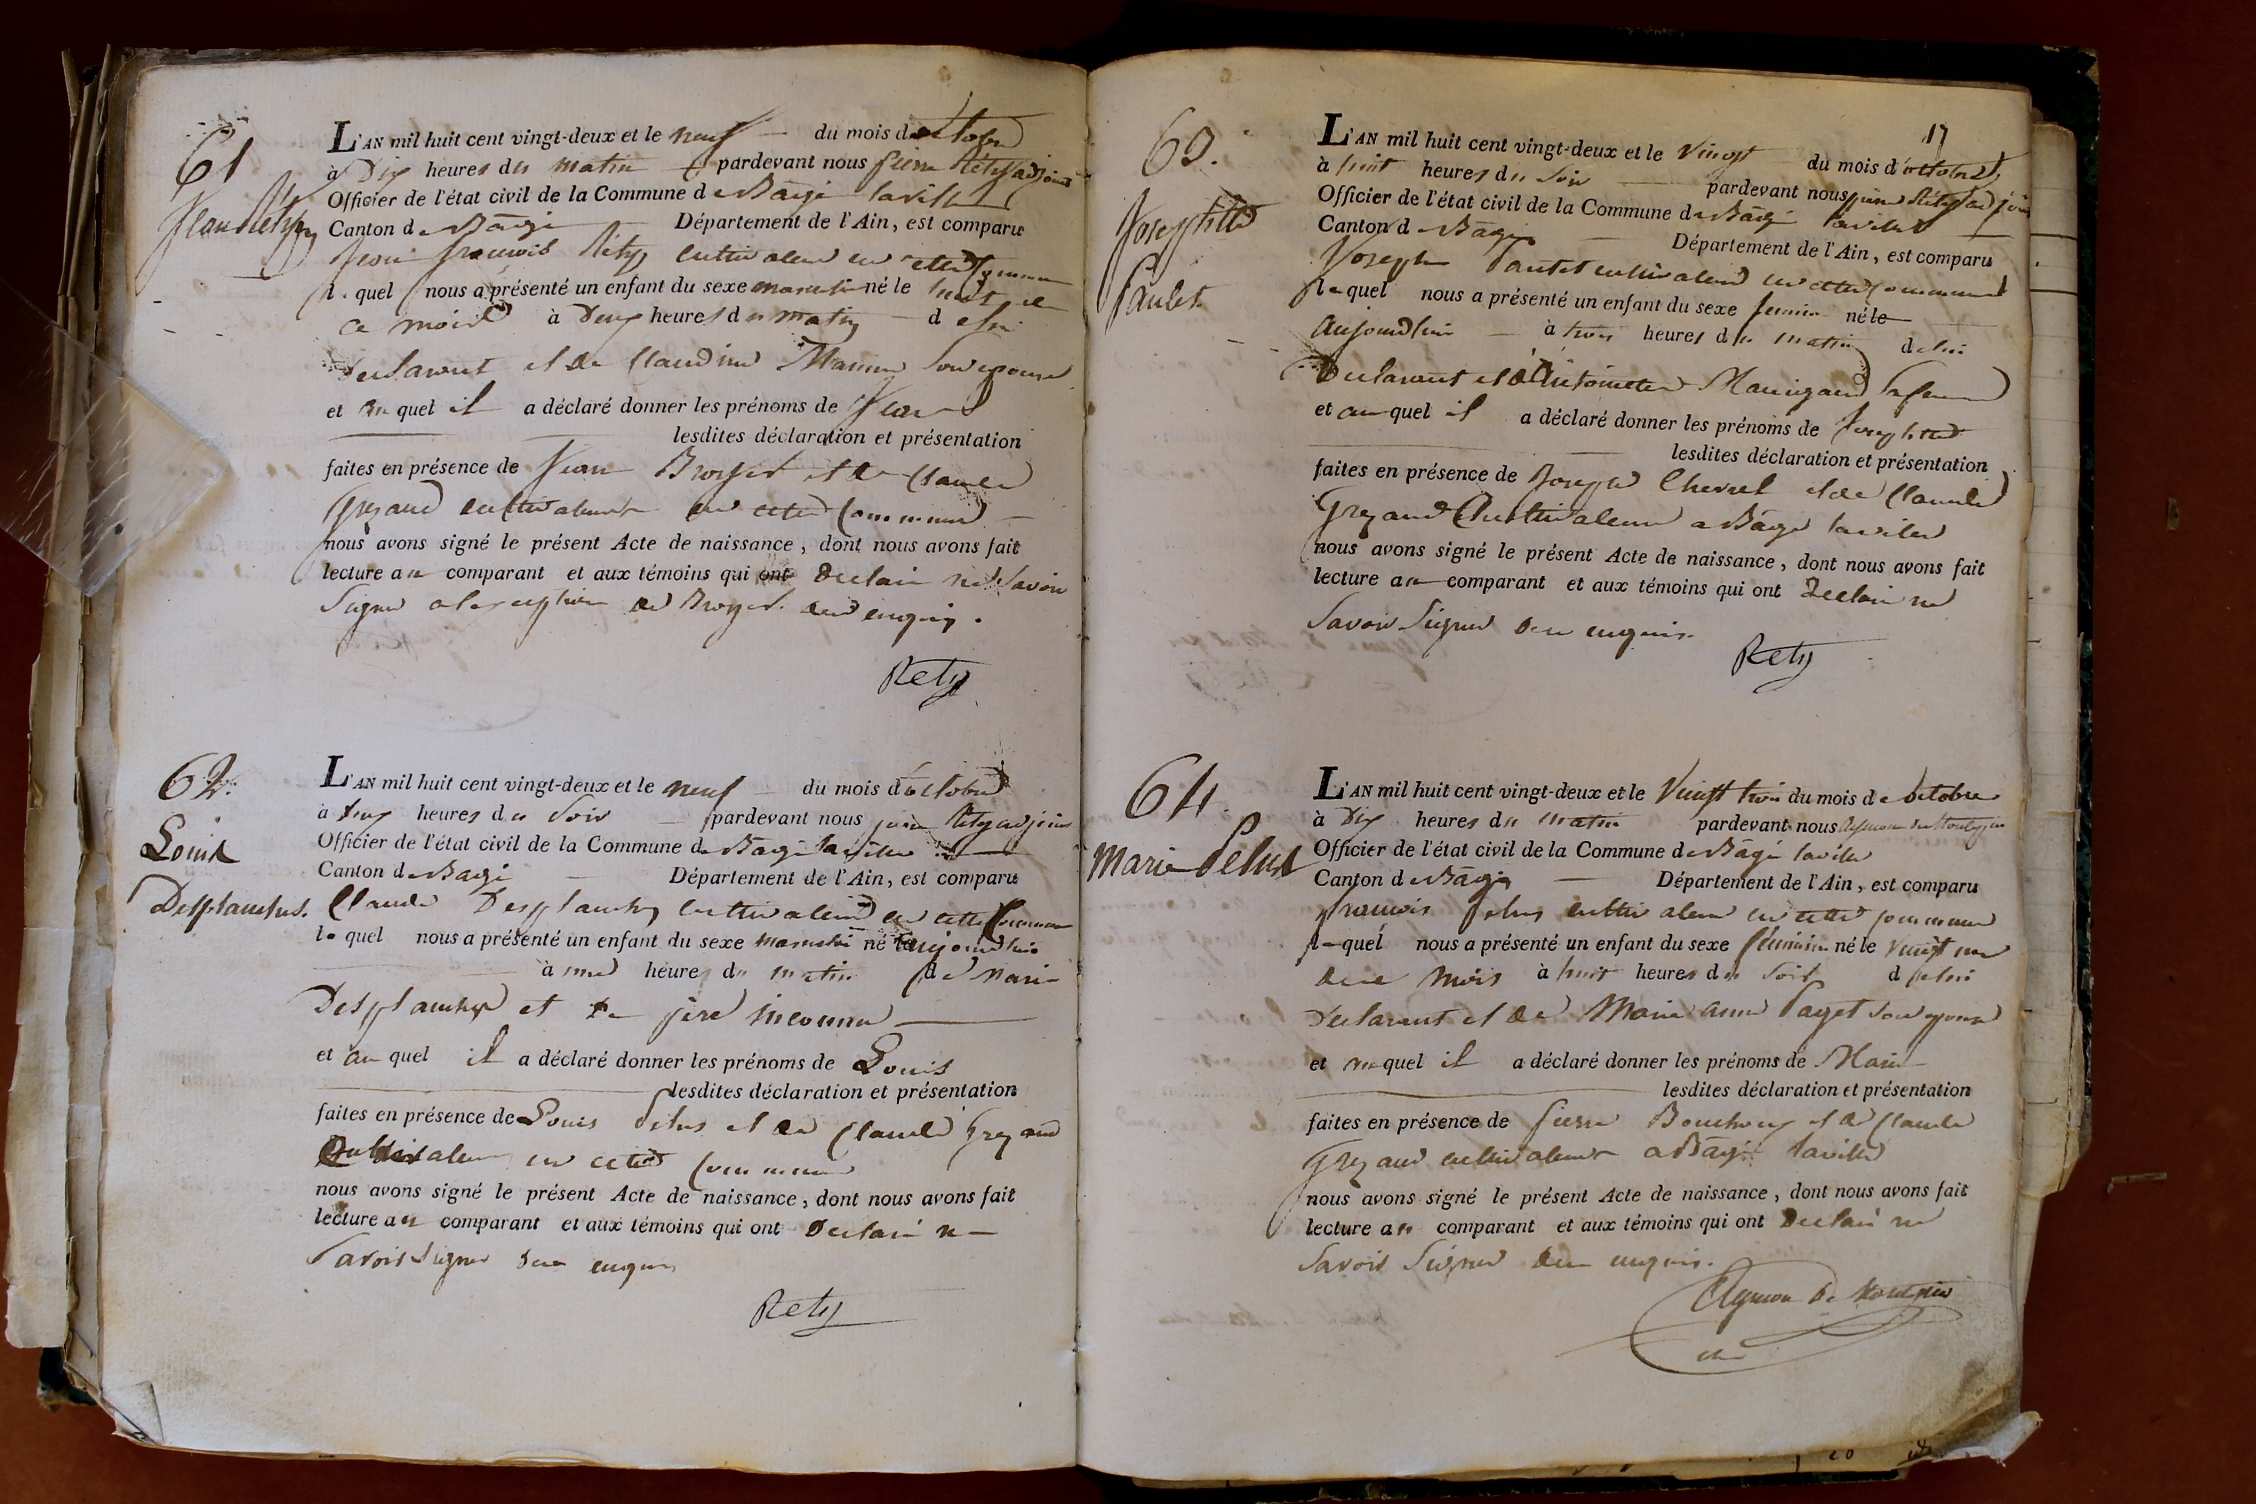 61
Jean Réty
L'AN mil huit cent vingt-deux et le neuf du mois d'octobre
à Dix heures du matin pardevant nous pierre Réty adjoint
Officier de l'état civil de la Commune de Bâgé laville
Canton de Bâgé Département de l'Ain, est comparu
francois Réty cultivateur en cette Commune
lequel nous a présenté un enfant du sexe masculin né le huit de
ce mois à Deux heures du matin de lui
Declarant et de Claudine son epouse
et auquel il a déclaré donner les prénoms de Jean
lesdites déclaration et présentation
faites en présence de Jean Broyer et de Claude
Greyaud cultivateurs en cette Commune
nous avons signé le présent Acte de naissance, dont nous avons fait
lecture au comparant et aux témoins qui ont Declaré ne Savoir
Signer a lexception de Broyer de ce enquis.
Rety
62.
Louis
Desplanches.
L'AN mil huit cent vingt-deux et le neuf du mois d'octobre
à deux heures du Soir pardevant nous pierre Réty adjoint
Officier de l'état civil de la Commune de Bâgé laville
Canton de Bâgé Département de l'Ain, est comparu
Claude Desplanches cultivateur en cette Commune
lequel nous a présenté un enfant du sexe masculin né aujourdhui
à une heures du matin de Marie
Desplanches et de père inconnu
et auquel il a déclaré donner les prénoms de Louis
lesdites déclaration et présentation
faites en présence de Louis Pelus et de Claude Greyaud
Cultivateurs en cette Commune
nous avons signé le présent Acte de naissance, dont nous avons fait
lecture au comparant et aux témoins qui ont Declaré ne
Savoir Signer de ce enquis
Rety
17
63.
Josephte
Paulet
L'AN mil huit cent vingt-deux et le Vingt du mois d'octobre
à huit heures du Soir pardevant nous pierre Réty adjoint
Officier de l'état civil de la Commune de Bâgé laville
Canton de Bâgé Département de l'Ain, est comparu
Joseph Paulet cultivateur en cette Commune
lequel nous a présenté un enfant du sexe feminin né le
aujourdhui à trois heures du matin de lui
Declarant et d'Antoinette sa femme
et auquel il a déclaré donner les prénoms de Josephte
lesdites déclaration et présentation
faites en présence de Joseph Chevrel et de Claude
Greyaud Cultivateurs a Bâgé laville
nous avons signé le présent Acte de naissance, dont nous avons fait
lecture au comparant et aux témoins qui ont Declaré ne
Savoir Signer de ce enquis.
Rety
64.
Marie Pelus
L'AN mil huit cent vingt-deux et le Vingt trois du mois de octobre
à Dix heures du matin pardevant nous Aymon de Montepin
Officier de l'état civil de la Commune de Bâgé laville
Canton de Bâgé Département de l'Ain, est comparu
francois Pelus cultivateur en cette Commune
lequel nous a présenté un enfant du sexe féminin né le vingt un
de ce mois à huit heures du Soir de lui
Declarant et de Marie anne Paget son epouse
et auquel il a déclaré donner les prénoms de Marie
lesdites déclaration et présentation
faites en présence de Pierre Bouchoux et de Claude
Greyaud cultivateurs a Bâgé laville
nous avons signé le présent Acte de naissance, dont nous avons fait
lecture au comparant et aux témoins qui ont Declaré ne
Savoir Signer de ce enquis.
Aymon De Montepin